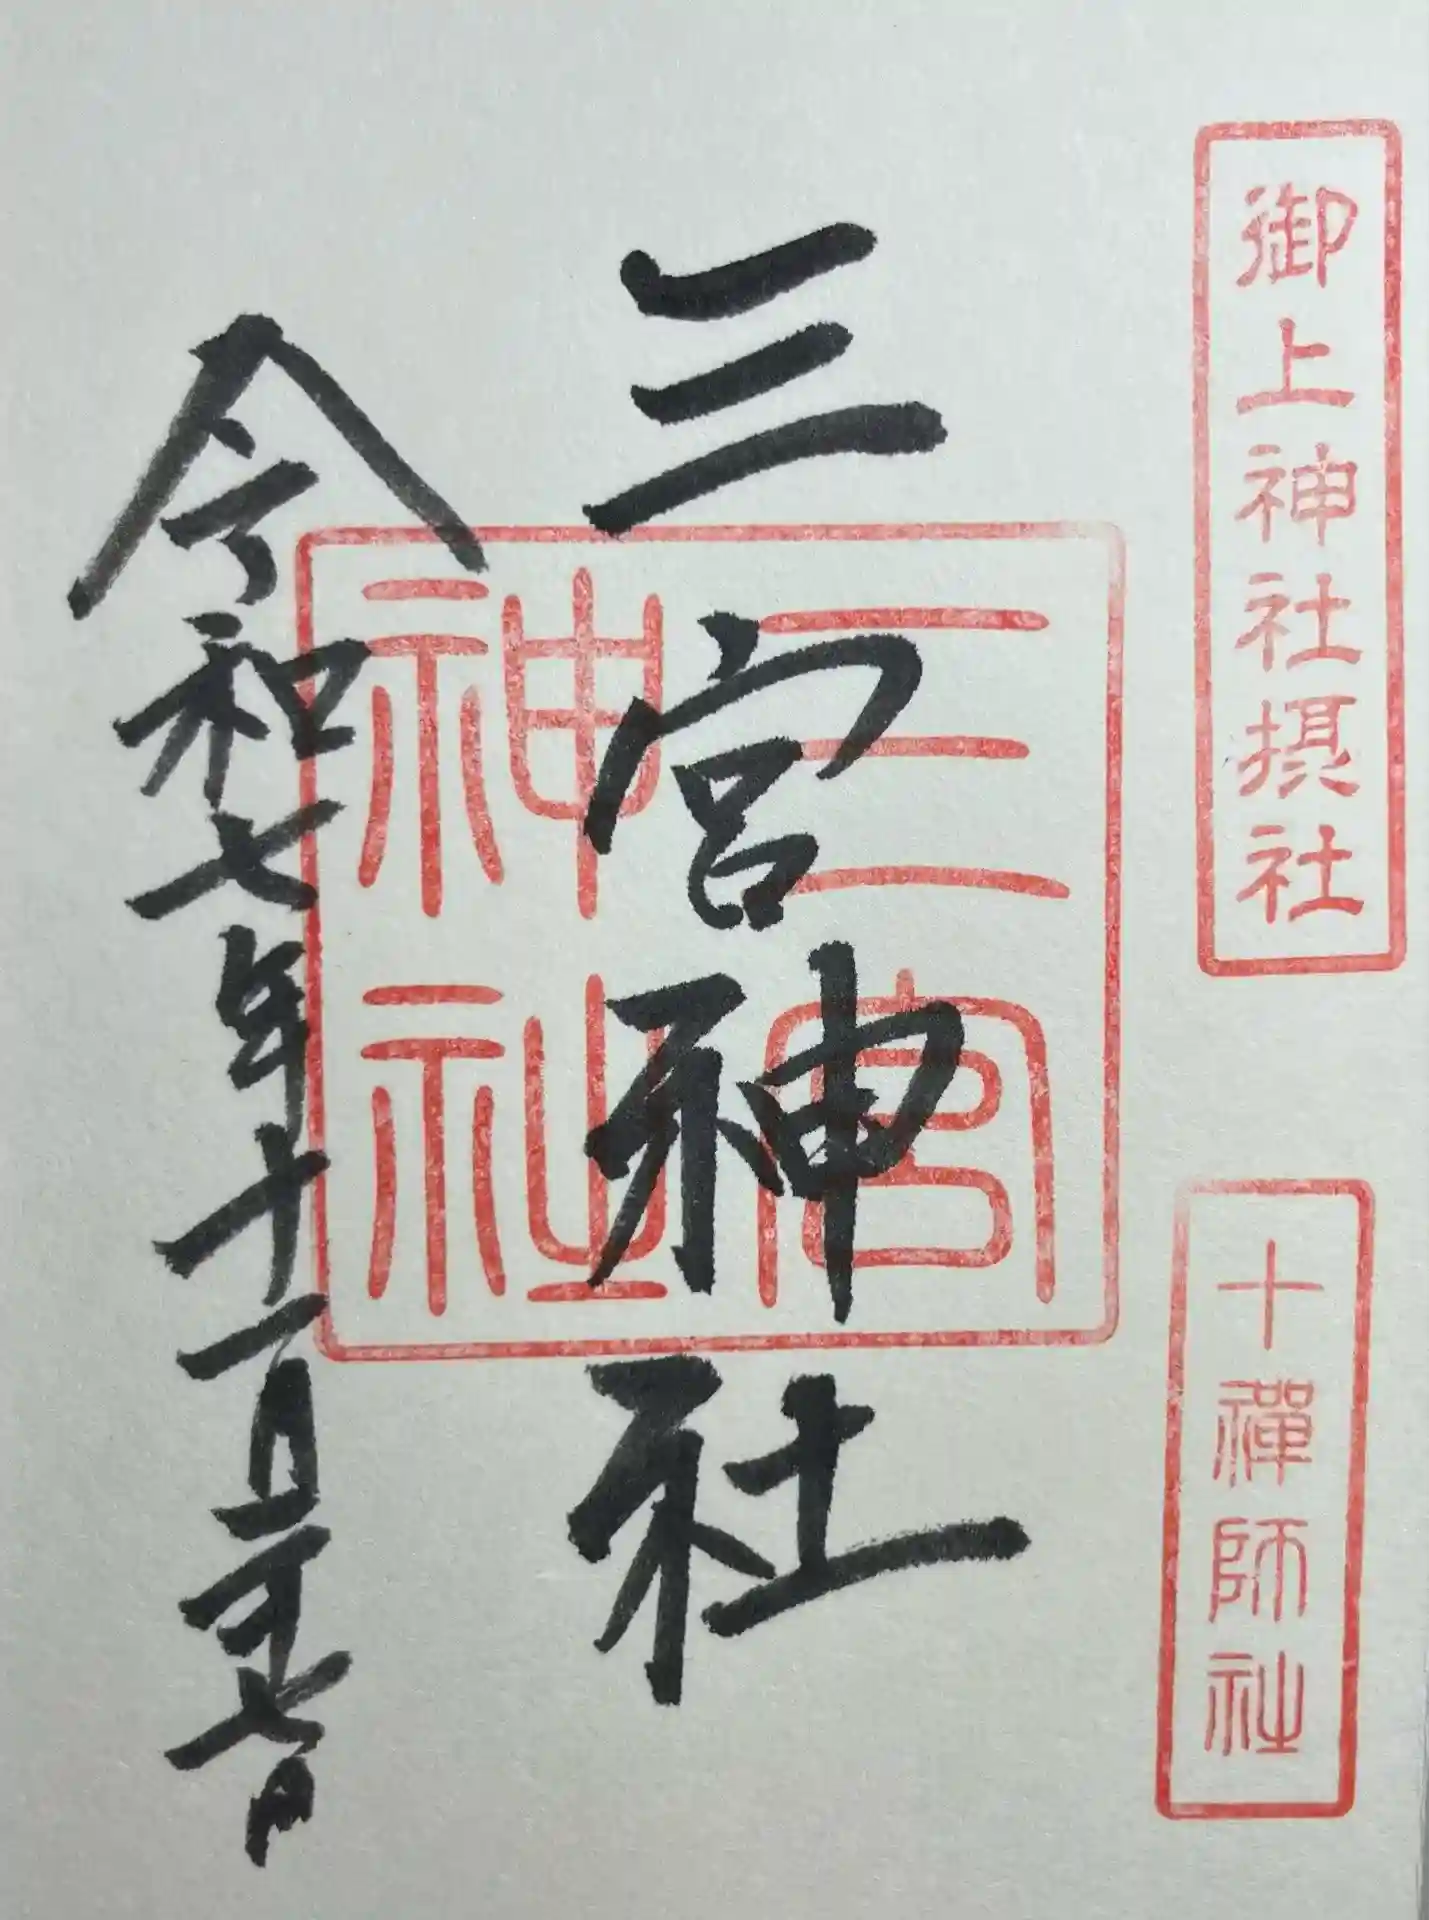 御上神社摂社
十禪師社
三宮神社
三宮
神社
令和七年十一月二十七日